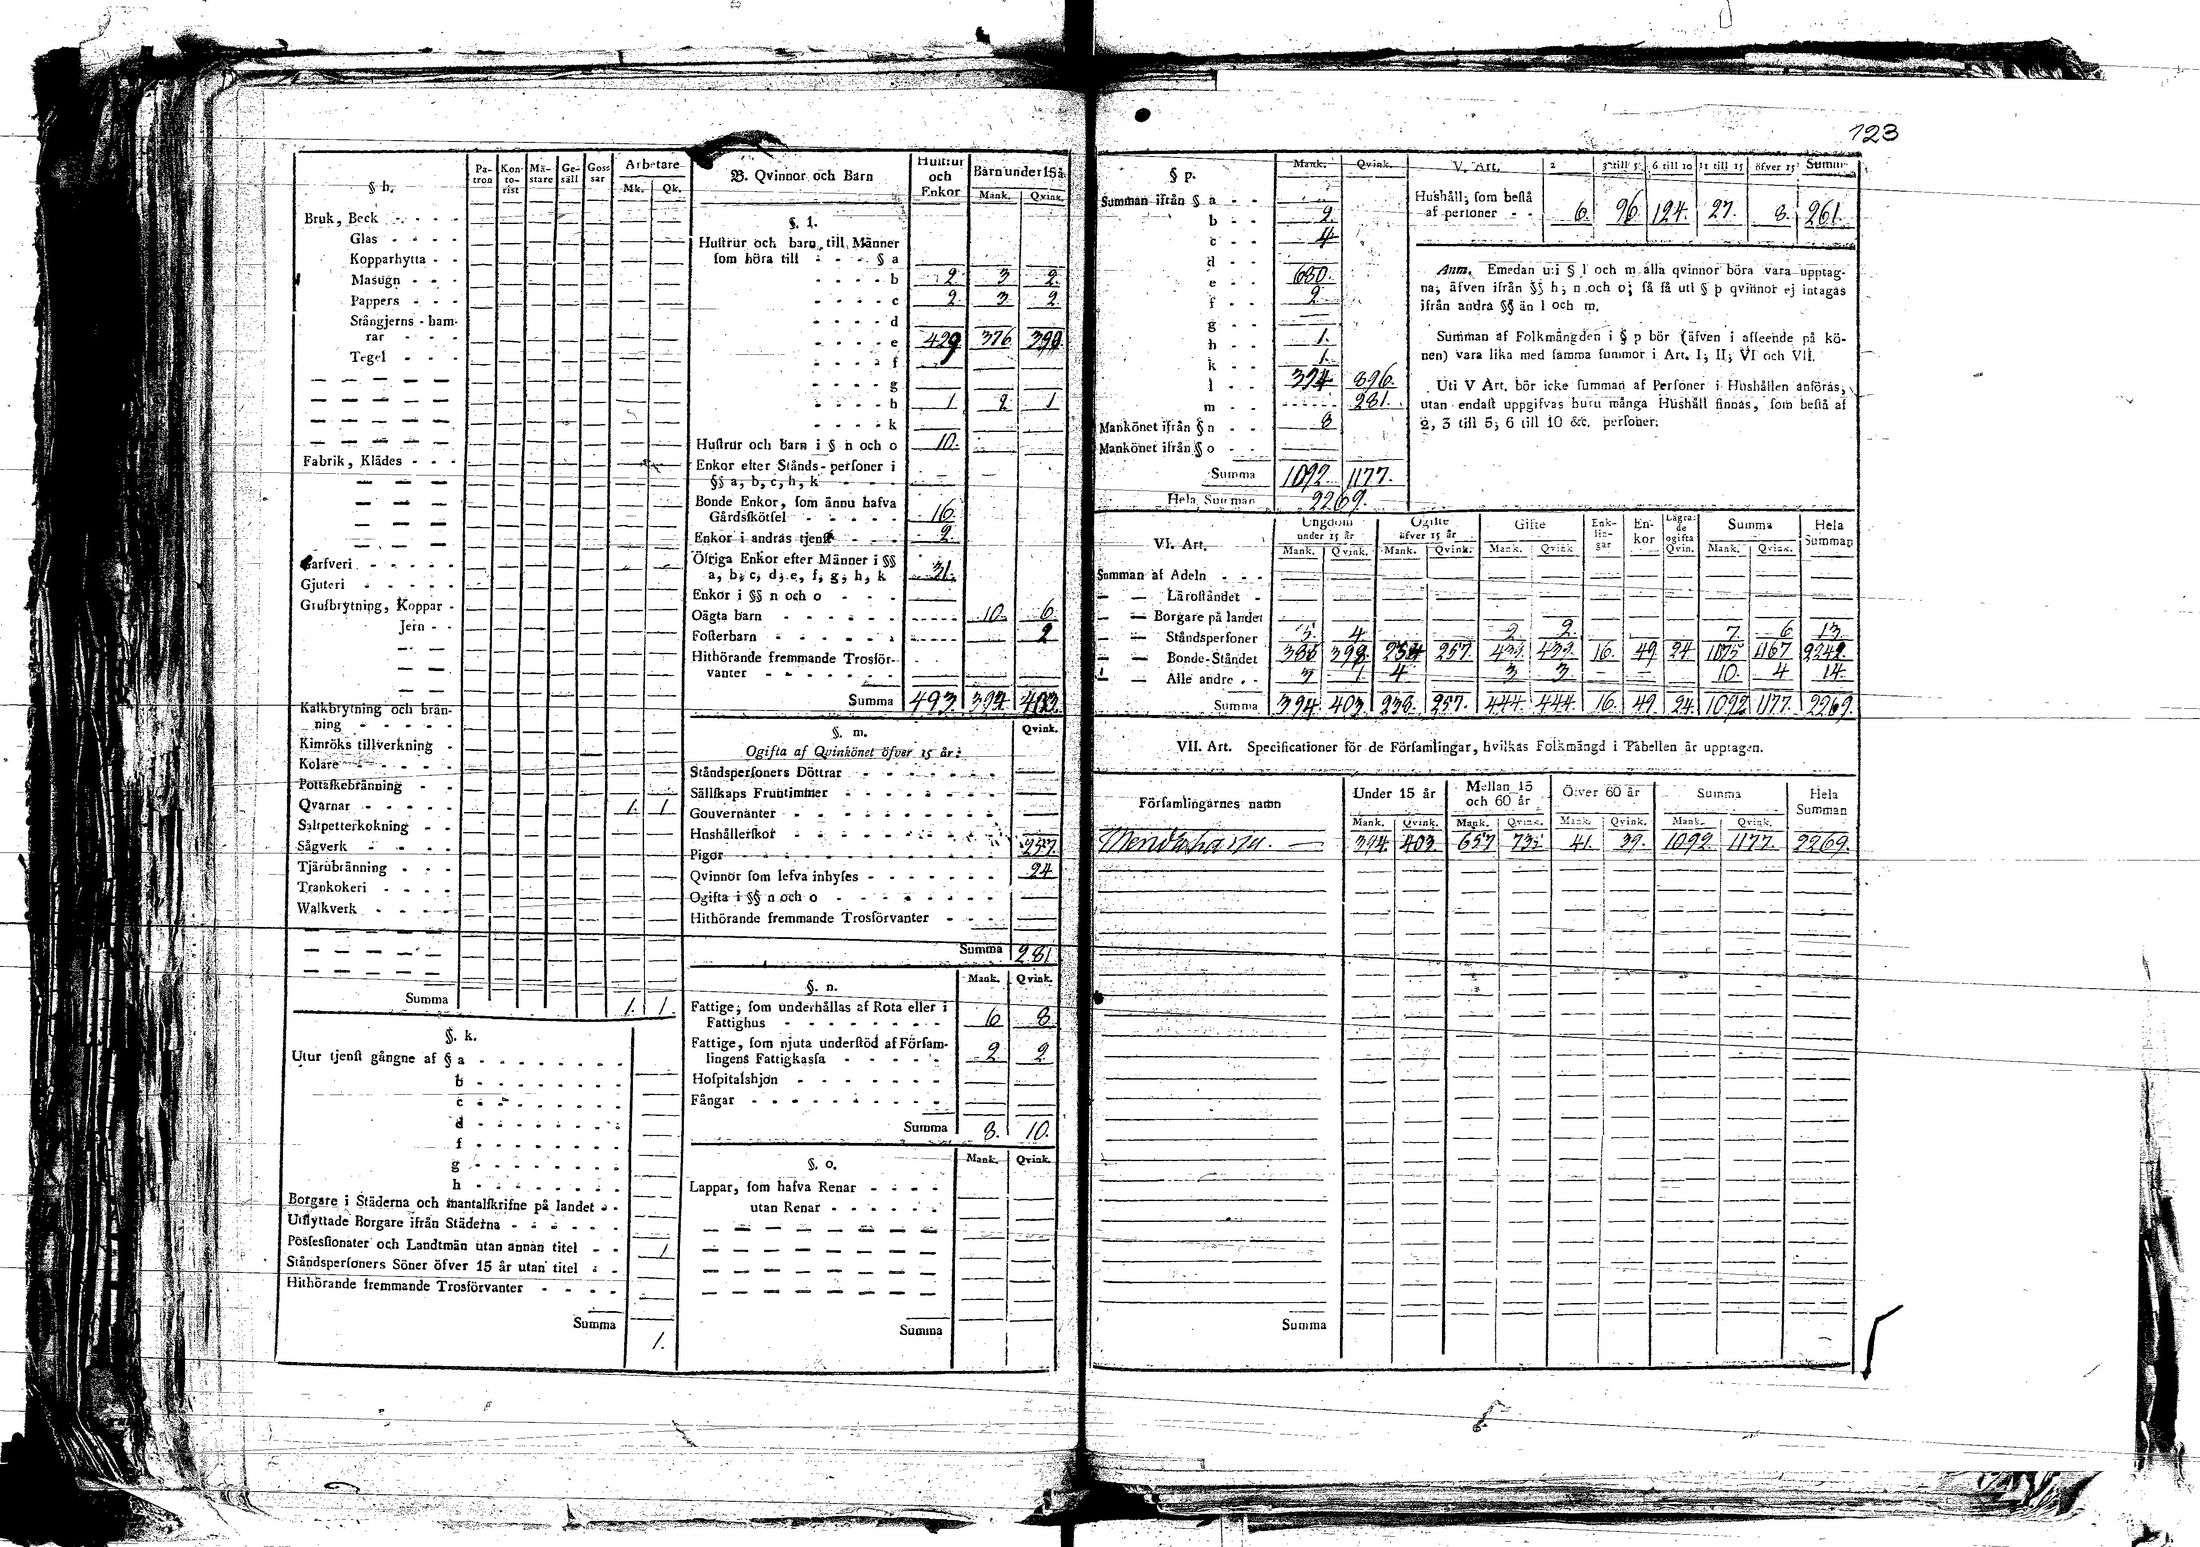 123
§ h.
Pa-tron Kon-to-rist Mä-stare Ge-säll Gos-sar Arbetare
Mk. Qk.
Bruk, Beck
Glas
Kopparhytta
Masugn
Pappers
Stångjerns-ham-
rar
Tegel
Fabrik, Klädes
Garfveri
Gjuteri
Grufbrytning, Koppar
Jern
Kalkbrytning och brän-
ning
Kimröks tillverkning
Kolare
Pottaskebränning
Qvarnar 1. 1
Saltpetterkokning
Sågverk
Tjärubränning
Trankokeri
Walkverk
Summa 1. 1.
§. k.
Utur tjenst gångne af § a
b
c
d
f
g
h
Borgare i Städerna och mantalskrifne på landet
Utflyttade Borgare ifrån Städerna
Possessionater och Landtmän utan annan titel 1
Ståndspersoners Söner öfver 15 år utan titel
Hithörande fremmande Trosförvanter
Summa 1.
B. Qvinnor och Barn Hustrur och Enkor Barn under 15 å
Mank. Qvink.
§. l.
Hustrur och barn till Männer
som höra till § a
b 2. 3 2.
c 2. 3 2.
d
e 429 376 390
f
g
h 1 2 1
k
Hustrur och barn i § n och o 10.
Enkor efter Stånds-personer i
§§ a, b, c, h, k
Bonde Enkor, som ännu hafva
Gårdsskötsel 16.
Enkor i andras tjenst 2.
Öfriga Enkor efter Männer i §§
a, b, c, d, e, f, g, h, k 31.
Enkor i §§ n och o
Oägta barn 10. 6.
Fosterbarn 2
Hithörande fremmande Trosför-
vanter
Summa 493. 394. 403.
§. m. Qvink.
Ogifta af Qvinkönet öfver 15 år:
Ståndspersoners Döttrar
Sällskaps Fruntimmer
Gouvernanter
Hushållerskor
Pigor 257.
Qvinnor som lefva inhyses 24
Ogifta i §§ n och o
Hithörande fremmande Trosförvanter
Summa 281
§. n. Mank. Qvink.
Fattige, som underhållas af Rota eller i
Fattighus 6 8
Fattige, som njuta understöd af Försam-
lingens Fattigkassa 2 2
Hospitalshjon
Fångar
Summa 8. 10.
§. o. Mank. Qvink.
Lappar, som hafva Renar
utan Renar
Summa
§ p. Mank. Qvink.
Summan ifrån § a
b 2.
c 4
d
e 680.
f 2
g
h 1.
k 1.
l 394 896.
m 281.
Mankönet ifrån § n 8
Mankönet ifrån § o
Summa 1092. 1177.
Hela Summan 2269.
V. Art. 2 3 till 5 6 till 10 11 till 15 öfver 15 Summa
Hushåll, som bestå
af personer 6. 96 124. 27. 8. 261.
Anm. Emedan uti § l och m alla qvinnor böra vara upptag-
na, äfven ifrån §§ h, n och o; så få uti § p qvinnor ej intagas
ifrån andra §§ än l och m.
Summan af Folkmängden i § p bör (äfven i afseende på kö-
nen) vara lika med samma summor i Art. I, II, VI och VII.
Uti V Art. bör icke summan af Personer i Hushållen anföras,
utan endast uppgifvas huru många Hushåll finnas, som bestå af
2, 3 till 5, 6 till 10 &c. personer.
VI. Art. Ungdom under 15 år Ogifte öfver 15 år Gifte Enk-lin-gar En-kor Lägra-de ogifta Qvin. Summa Hela Summan
Mank. Qvink. Mank. Qvink. Mank. Qvink. Mank. Qvink.
Summan af Adeln
Läroståndet
Borgare på landet
Ståndspersoner 5. 4. 2. 2. 7. 6 13.
Bonde-Ståndet 398. 257. 16. 49 24. 1075 1167 2242.
Alle andre 3 1 4 3 3. 10. 4 14.
Summa 394. 403. 238. 257. 444. 444. 16. 49. 24. 1092 1177. 2269.
VII. Art. Specificationer för de Församlingar, hvilkas Folkmängd i Tabellen är upptagen.
Församlingarnes namn Under 15 år Mellan 15 och 60 år Öfver 60 år Summa Hela Summan
Mank. Qvink. Mank. Qvink. Mank. Qvink. Mank. Qvink.
394. 403. 657 735 41. 39. 1092. 1177. 2269.
Summa